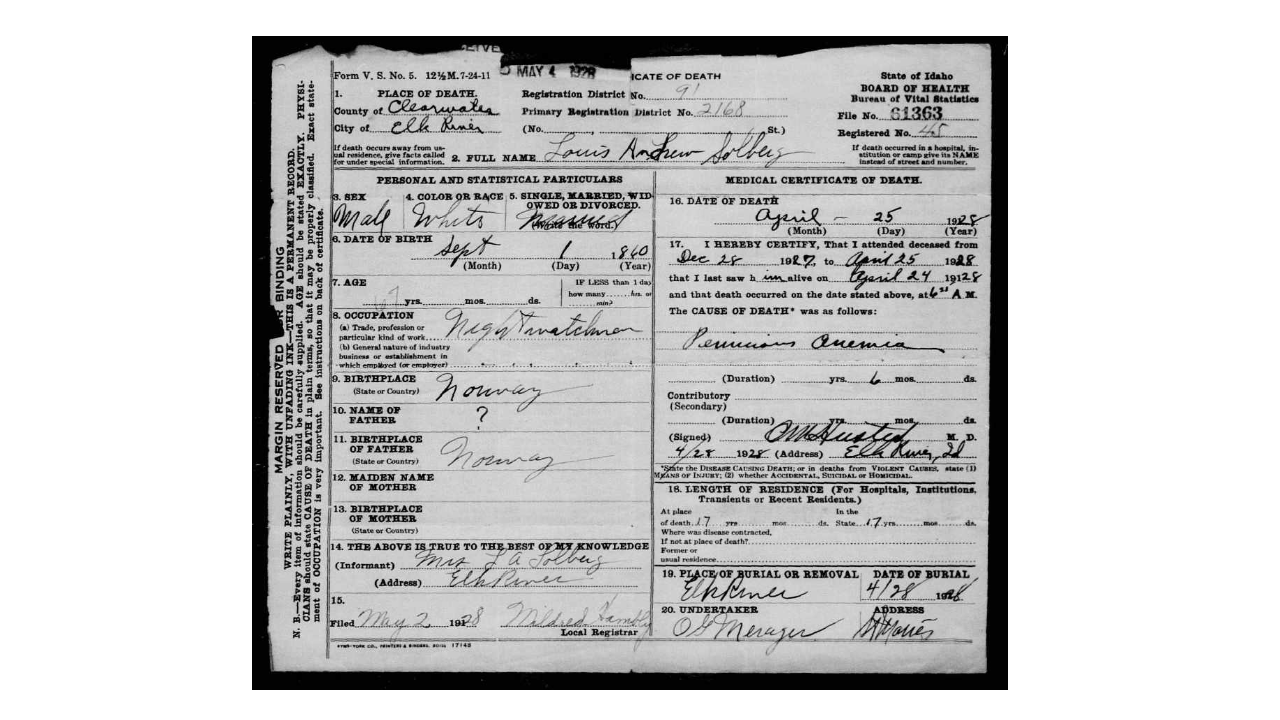 MAY 4 1928
ICATE OF DEATH
Form V. S. No. 5. 12½M. 7-24-11
State of Idaho
BOARD OF HEALTH
Bureau of Vital Statistics
File No. 61363
Registered No. 45
If death occurred in a hospital, in-
stitution or camp give its NAME
instead of street and number.
1. PLACE OF DEATH.
County of Clearwater
City of Elk River
Registration District No. 91
Primary Registration District No. 2168
(No. , St.)
If death occurs away from us-
ual residence, give facts called
for under special information.
2. FULL NAME Louis Andrew Solberg
MARGIN RESERVED FOR BINDING
WRITE PLAINLY, WITH UNFADING INK—THIS IS A PERMANENT RECORD.
N. B.—Every item of information should be carefully supplied. AGE should be stated EXACTLY. PHYSI-
CIANS should state CAUSE OF DEATH in plain terms, so that it may be properly classified. Exact state-
ment of OCCUPATION is very important. See instructions on back of certificate.
PERSONAL AND STATISTICAL PARTICULARS
3. SEX Male
4. COLOR OR RACE White
5. SINGLE, MARRIED, WID-
OWED OR DIVORCED.
(Write the word.) Married
6. DATE OF BIRTH Sept 1 1860
(Month) (Day) (Year)
7. AGE 67 yrs. mos. ds.
IF LESS than 1 day
how many hrs. or
min.?
8. OCCUPATION
(a) Trade, profession or
particular kind of work Nightwatchman
(b) General nature of industry
business or establishment in
which employed (or employer)
9. BIRTHPLACE
(State or Country) Norway
10. NAME OF
FATHER ?
11. BIRTHPLACE
OF FATHER
(State or Country) Norway
12. MAIDEN NAME
OF MOTHER
13. BIRTHPLACE
OF MOTHER
(State or Country)
14. THE ABOVE IS TRUE TO THE BEST OF MY KNOWLEDGE
(Informant) Mrs L A Solberg
(Address) Elk River
15.
Filed May 2 1928 Mildred
Local Registrar
MEDICAL CERTIFICATE OF DEATH.
16. DATE OF DEATH
April - 25 1928
(Month) (Day) (Year)
17. I HEREBY CERTIFY, That I attended deceased from
Dec 28 1927, to April 25 1928
that I last saw h im alive on April 24 19128
and that death occurred on the date stated above, at 6 A M.
The CAUSE OF DEATH* was as follows:
Pernicious Anemia
(Duration) yrs. 6 mos. ds.
Contributory
(Secondary)
(Duration) yrs. mos. ds.
(Signed) M. D.
4/28 1928 (Address) Elk River, Id
*State the DISEASE CAUSING DEATH; or in deaths from VIOLENT CAUSES, state (1)
MEANS OF INJURY; (2) whether ACCIDENTAL, SUICIDAL or HOMICIDAL.
18. LENGTH OF RESIDENCE (For Hospitals, Institutions,
Transients or Recent Residents.)
At place In the
of death 17 yrs mos. ds. State 17 yrs. mos. ds.
Where was disease contracted,
If not at place of death?
Former or
usual residence
19. PLACE OF BURIAL OR REMOVAL DATE OF BURIAL
Elk River 4/28 1928
20. UNDERTAKER ADDRESS
St Maries